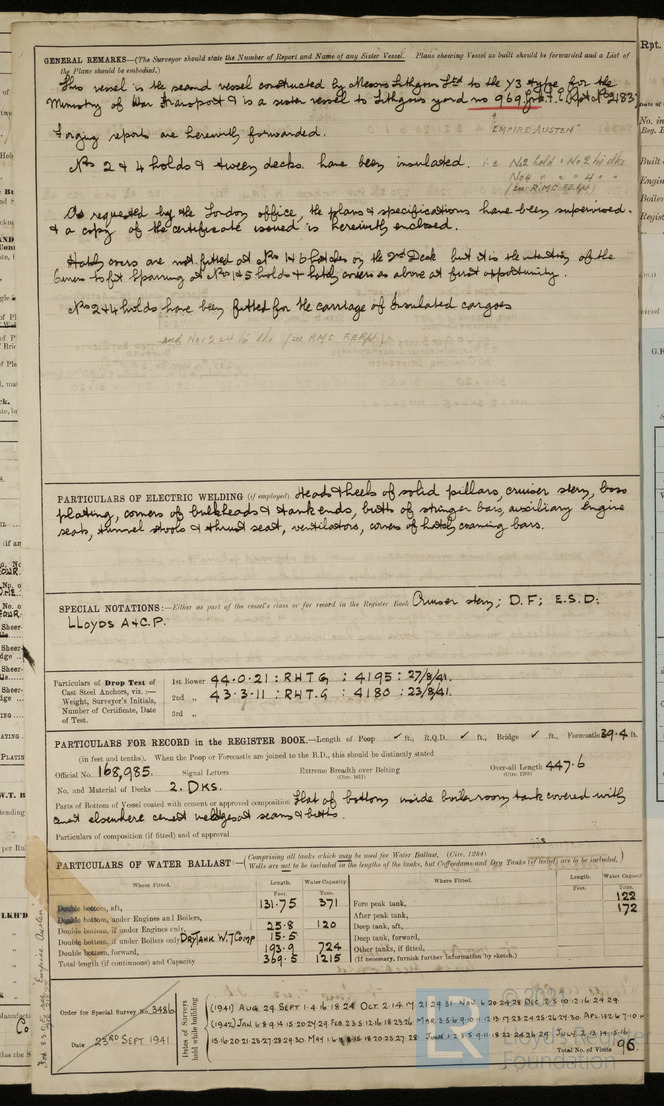 GENERAL REMARKS—(The Surveyor should state the Number of Report and Name of any Sister Vessel. Plans showing Vessel as built should be forwarded and a List of
the Plans should be embodied.)
This vessel is the second vessel constructed by Messrs Lithgows Ltd to the Y3 type for the
Ministry of War Transport & is a sister vessel to Lithgows yard no 969
"EMPIRE AUSTEN"
Forging reports are herewith forwarded.
Nos 2 & 4 holds & tween decks have been insulated. i.e. No2 hold + No2 tn dks
No4 " " " 4 " "
(see R.M.C. FERN)
As requested by the London office, the plans & specifications have been supervised.
& a copy of the certificate issued is herewith enclosed.
Hatch covers are not fitted at Nos 1 & 6 hatches on the 2nd Deck but it is the intention of the
Owners to fit sparring at Nos 1 & 5 holds & hatch covers as above at first opportunity.
Nos 2 & 4 holds have been fitted for the carriage of Insulated cargoes
and Nos 2 & 4 tn dks (see RMC FERN)
PARTICULARS OF ELECTRIC WELDING (if employed) Heads & heels of solid pillars, cruiser stern, boss
plating, corners of bulkheads & tank ends, butts of stringer bars, auxiliary engine
seats, tunnel stools & thrust seat, ventilators, corners of hatch coaming bars.
SPECIAL NOTATIONS:—Either as part of the vessel's class or for record in the Register Book Cruiser stern; D.F; E.S.D:
LLOYDS A & C.P.
Particulars of Drop Test of
Cast Steel Anchors, viz.:—
Weight, Surveyor's Initials,
Number of Certificate, Date
of Test.
1st Bower 44.0.21 : RHTG : 4195 : 27/8/41.
2nd „ 43.3.11 : RHT.G : 4180 : 23/8/41.
3rd „
PARTICULARS FOR RECORD in the REGISTER BOOK.—Length of Poop ✓ ft., R.Q.D. ✓ ft., Bridge ✓ ft., Forecastle 39.4 ft.
(in feet and tenths). When the Poop or Forecastle are joined to the B.D., this should be distinctly stated
Official No. 168,985. Signal Letters Extreme Breadth over Belting Over-all Length 447.6
(Circ. 1611) (Circ. 1703)
No. and Material of Decks 2. DKS.
Parts of Bottom of Vessel coated with cement or approved composition Flat of bottom inside boiler room tank covered with
cement elsewhere cement wedges at seams & butts.
Particulars of composition (if fitted) and of approval
PARTICULARS OF WATER BALLAST:—(Comprising all tanks which may be used for Water Ballast. (Circ. 1284)
Wells are not to be included in the lengths of the tanks, but Cofferdams and Dry Tanks (if tested) are to be included.)
Where Fitted. Length. Water Capacity. Where Fitted. Length. Water Capacity
Feet. Tons. Feet. Tons.
Double bottom, aft, 131.75 371 Fore peak tank, 122
Double bottom, under Engines and Boilers, After peak tank, 172
Double bottom, if under Engines only, 25.8 120 Deep tank, aft,
Double bottom, if under Boilers only DRY TANK W.T COMP 15.5 Deep tank, forward,
Double bottom, forward, 193.9 724 Other tanks, if fitted,
Total length (if continuous) and Capacity 369.5 1215 (If necessary, furnish further information by sketch.)
Order for Special Survey No. 3486
Date 23RD SEPT. 1941.
Dates of Surveys
held while building
(1941) AUG. 29. SEPT. 1.4.16.18.24 OCT. 2.14.17.21.29.31 NOV. 6.20.24.28 DEC. 2.5.10.12.16.24.29.
(1942) JAN 6.8.9.14.15.20.24.29. FEB. 2.3.5.12.16.18.23.26 MAR 3.5.6.9.10.11.12.13.17.23.24.25.26.27.30 APL 1.2.6.7.10
Total No. of Visits 96.
© 2021
LR
Lloyd's Register
Foundation
Rpt.